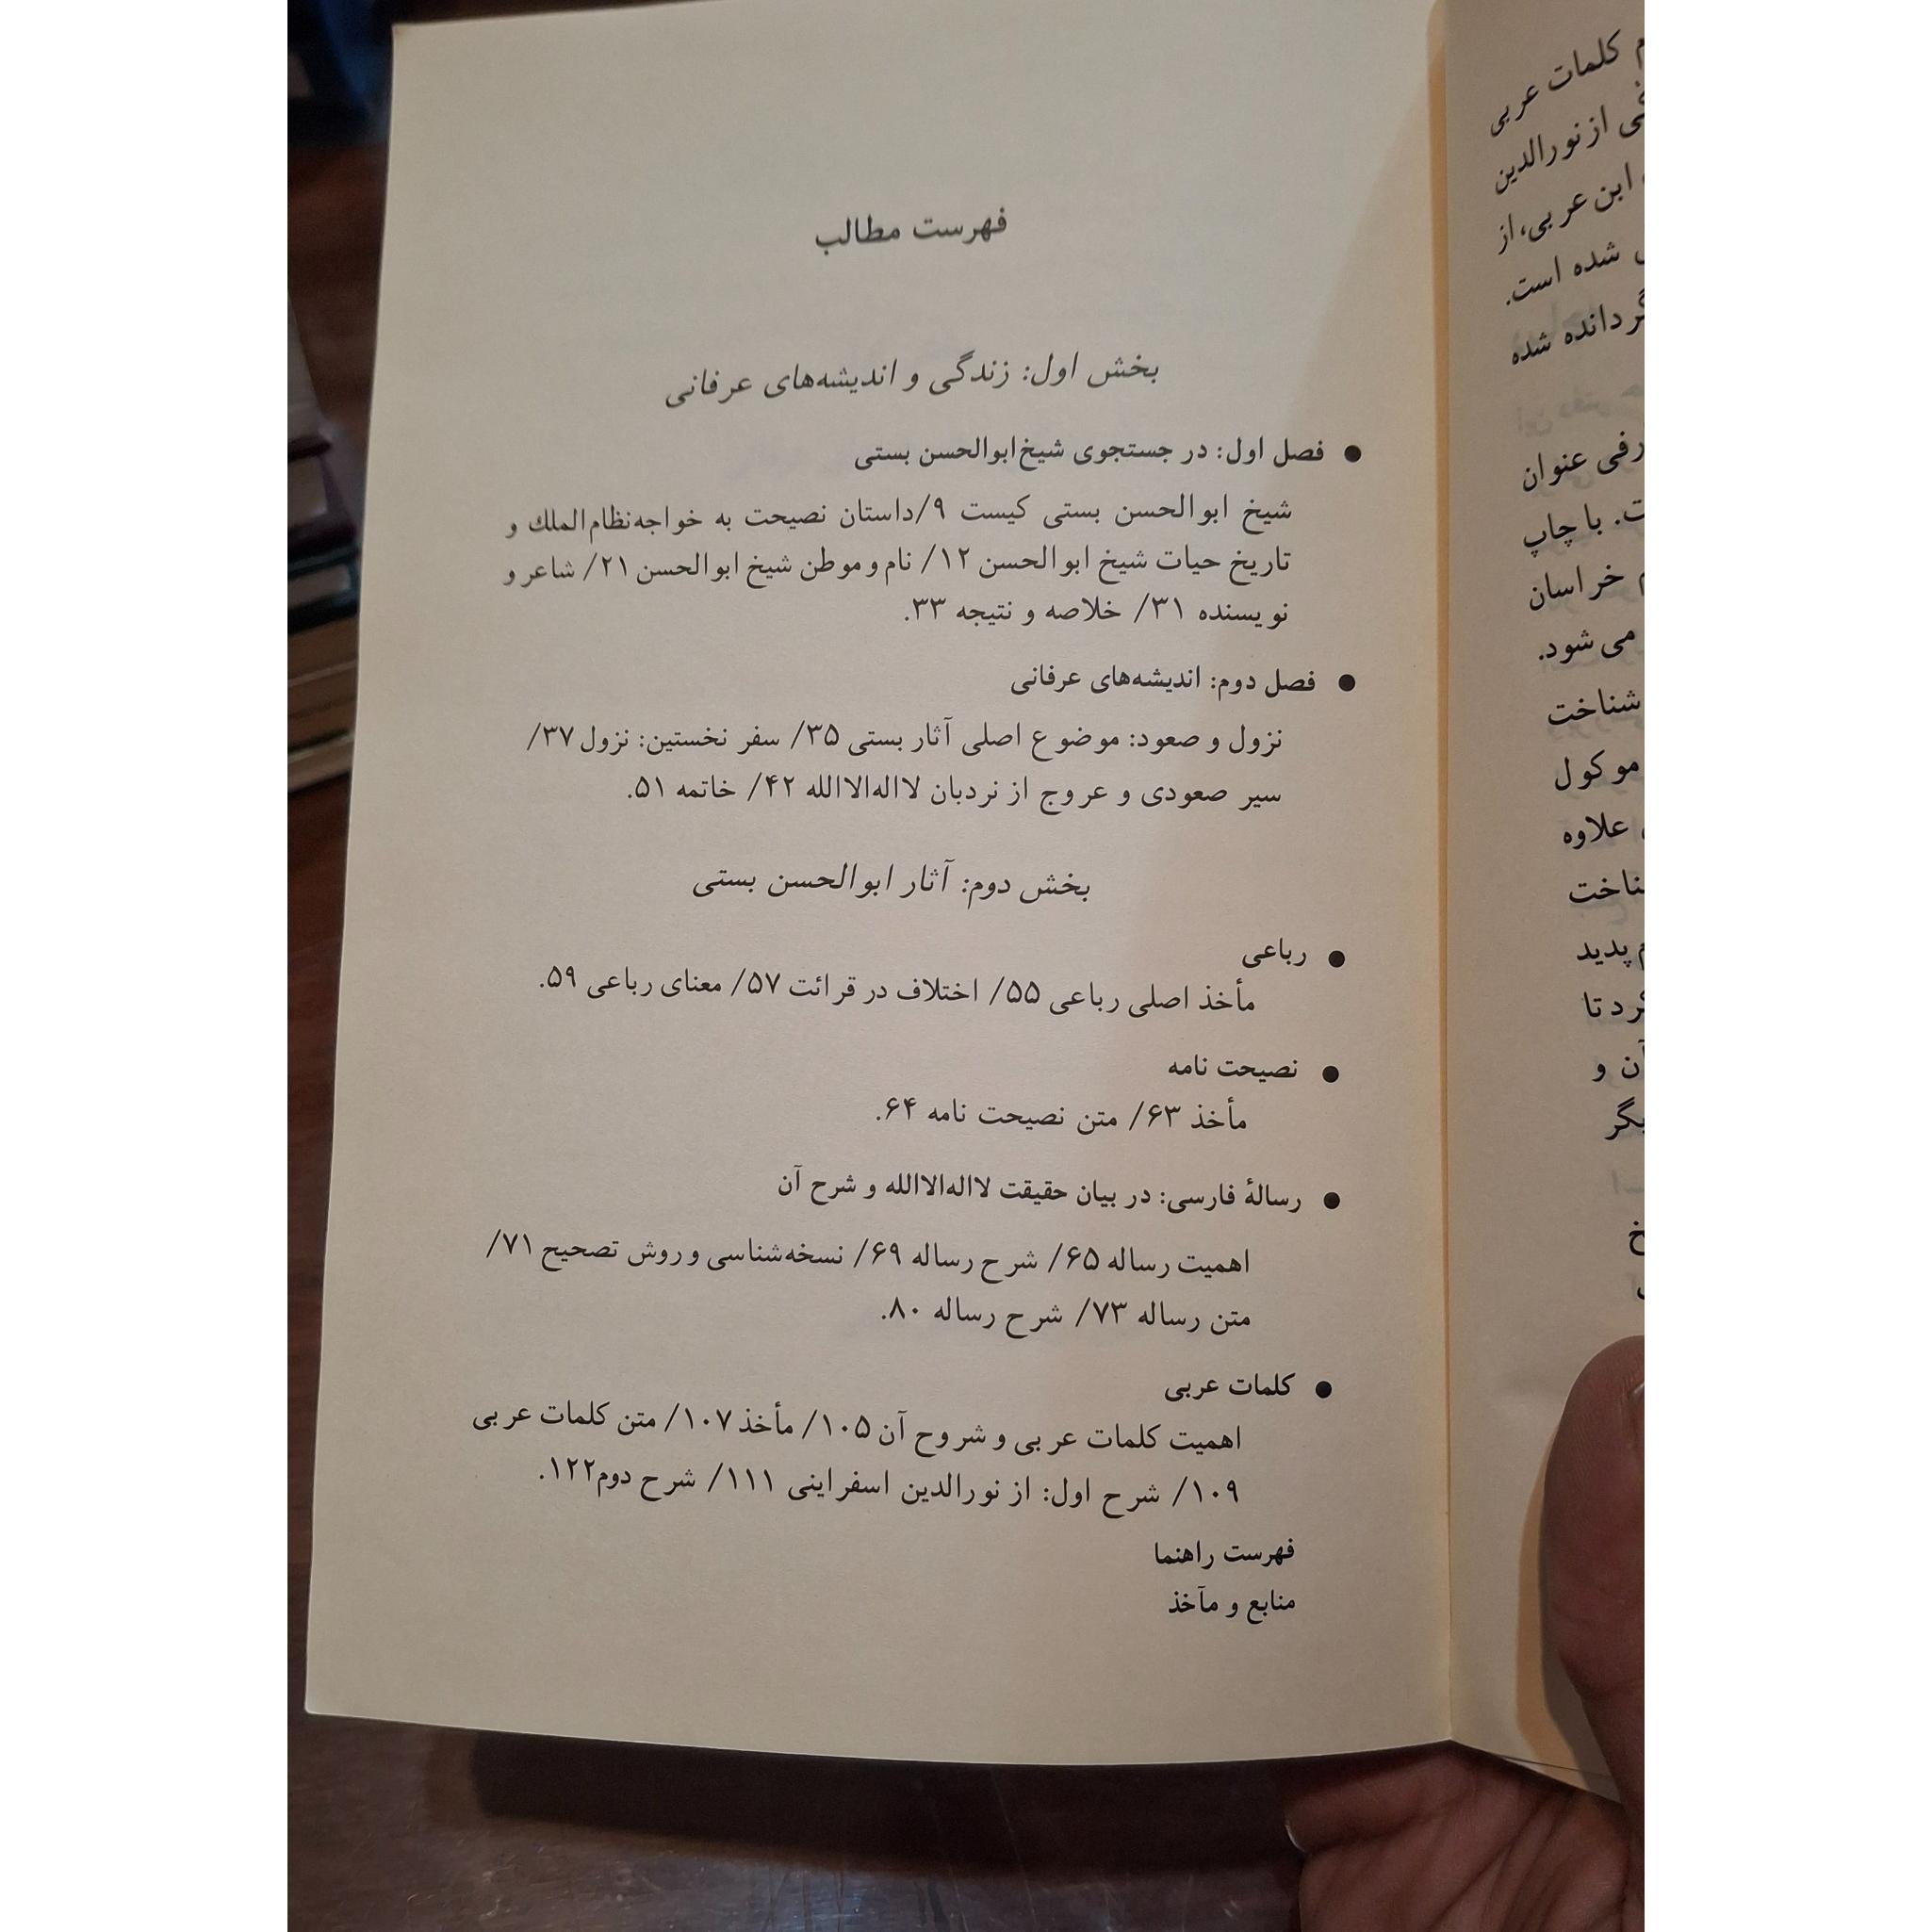 م کلمات عربی
از نورالدین
ابن عربی، از
شده است.
گردانده شده
رفی عنوان
ت. با چاپ
م خراسان
می‌شود.
شناخت
موکول
علاوه
ناخت
م پدید
کرد تا
آن و
یگر
فهرست مطالب
بخش اول: زندگی و اندیشه‌های عرفانی
● فصل اول: در جستجوی شیخ ابوالحسن بستی
شیخ ابوالحسن بستی کیست ۹/داستان نصیحت به خواجه‌نظام‌الملك و
تاریخ حیات شیخ ابوالحسن ۱۲/ نام و موطن شیخ ابوالحسن ۲۱/ شاعر و
نویسنده ۳۱/ خلاصه و نتیجه ۳۳.
● فصل دوم: اندیشه‌های عرفانی
نزول و صعود: موضوع اصلی آثار بستی ۳۵/ سفر نخستین: نزول ۳۷/
سیر صعودی و عروج از نردبان لااله‌الاالله ۴۲/ خاتمه ۵۱.
بخش دوم: آثار ابوالحسن بستی
● رباعی
مأخذ اصلی رباعی ۵۵/ اختلاف در قرائت ۵۷/ معنای رباعی ۵۹.
● نصیحت نامه
مأخذ ۶۳/ متن نصیحت نامه ۶۴.
● رسالهٔ فارسی: در بیان حقیقت لااله‌الاالله و شرح آن
اهمیت رساله ۶۵/ شرح رساله ۶۹/ نسخه‌شناسی و روش تصحیح ۷۱/
متن رساله ۷۳/ شرح رساله ۸۰.
● کلمات عربی
اهمیت کلمات عربی و شروح آن ۱۰۵/ مأخذ ۱۰۷/ متن کلمات عربی
۱۰۹/ شرح اول: از نورالدین اسفراینی ۱۱۱/ شرح دوم۱۲۲.
فهرست راهنما
منابع و مآخذ